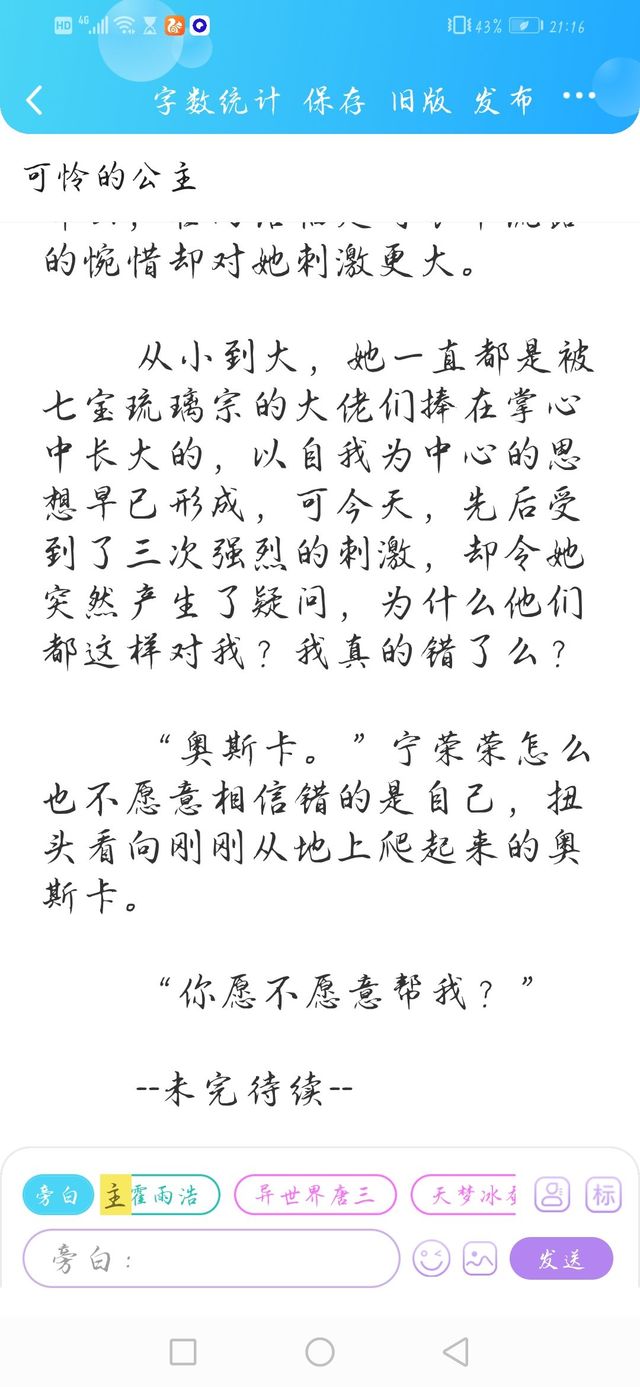 HD 4G 43% 21:16
字数统计 保存 旧版 发布 ...
可怜的公主
的惋惜却对她刺激更大。
从小到大，她一直都是被
七宝琉璃宗的大佬们捧在掌心
中长大的，以自我为中心的思
想早已形成，可今天，先后受
到了三次强烈的刺激，却令她
突然产生了疑问，为什么他们
都这样对我？我真的错了么？
“奥斯卡。”宁荣荣怎么
也不愿意相信错的是自己，扭
头看向刚刚从地上爬起来的奥
斯卡。
“你愿不愿意帮我？”
--未完待续--
旁白 主 霍雨浩 异世界唐三 天梦冰 标
旁白： 发送